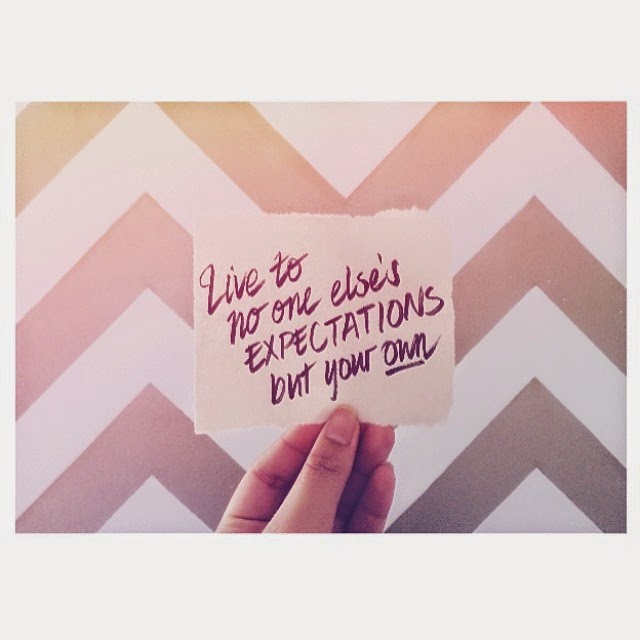 Live to
no one else's
EXPECTATIONS
but your own